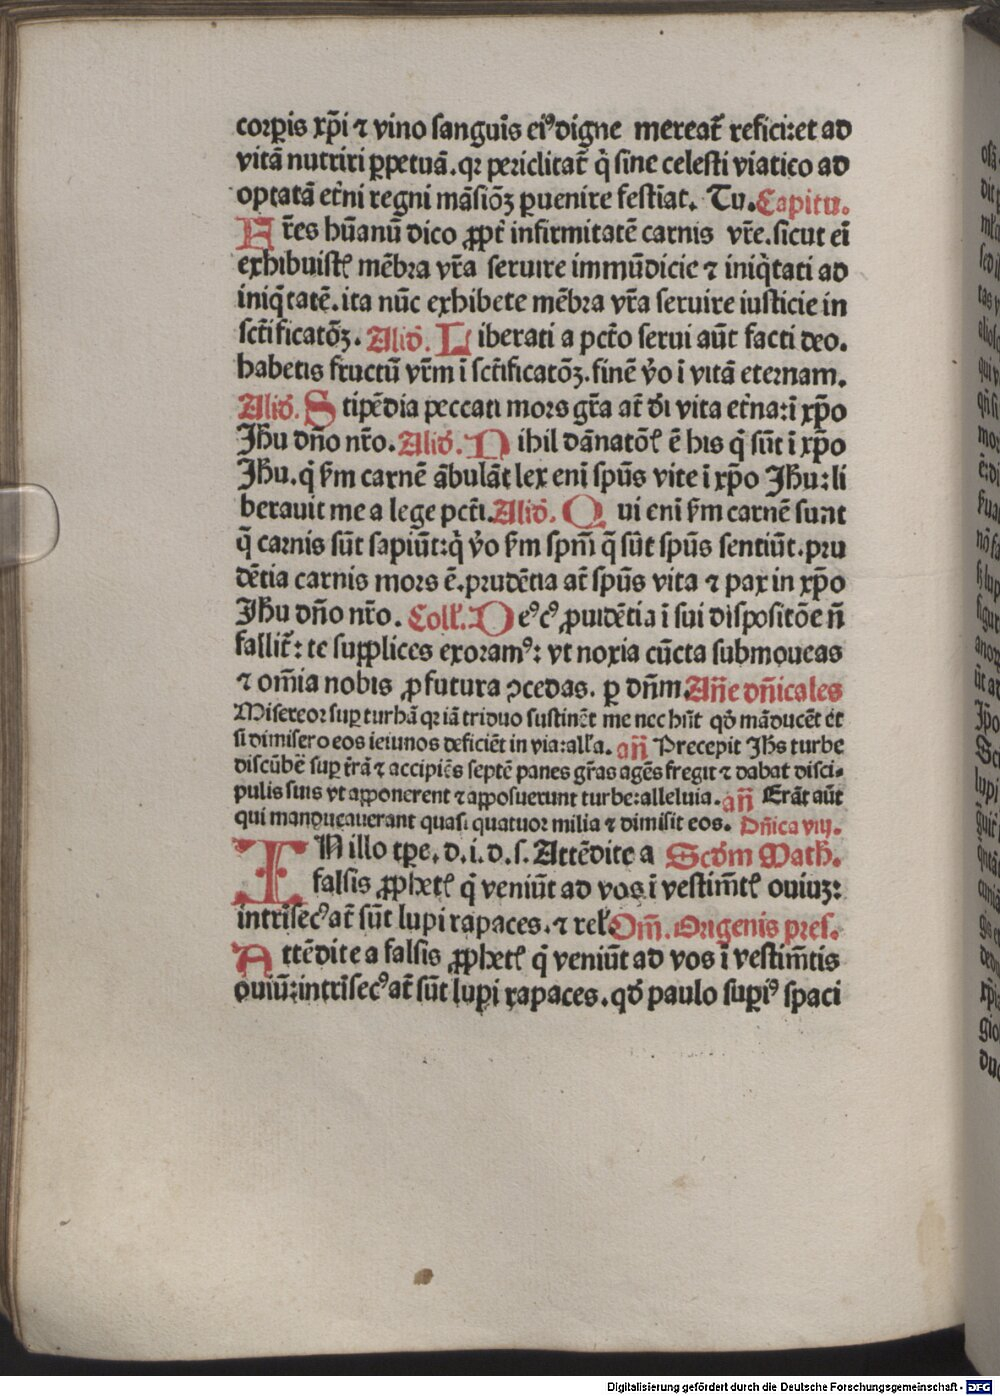 corꝑis xp̄i ⁊ vino sanguīs eiꝰ digne mereat̄ reficir:et ad
vitā nutriri ꝑpetuā. qꝛ periclitat̄ q̇ sine celesti viatico ad
optatā et̄ni regni māsiōꝫ ꝑuenire festīat. Tu. Capitu.
Fr̄es hūanū dico ꝓpt̄ infirmitatē carnis vr̄e. sicut eī
exhibuistꝭ mēbra vr̄a seruire immūdicie ⁊ iniq̇tati ad
iniq̇tatē. ita nūc exhibete mēbra vr̄a seruire iusticie in
sct̄ificatōꝫ. Aliđ. Liberati a pct̄o serui aūt facti deo.
habetis fructū vr̄m ī sct̄ificatōꝫ. finē v̓o ī vitā eternam.
Aliđ. Stipēdia peccati mors gr̄a at̄ dī vita et̄na: ī xp̄o
Jħu dn̄o nr̄o. Aliđ. Nihil dānatōꝭ ē his q̇ sūt ī xp̄o
Jħu. q̇ ẜm carnē ābulāt lex enī sp̄us vite ī xp̄o Jħu: li
berauit me a lege pct̄i. Aliđ. Qui enī ẜm carnē sunt
q̄ carnis sūt sapiūt: q̇ v̓o ẜm sp̄m q̄ sūt sp̄us sentiūt. pru
dētia carnis mors ē. prudētia at̄ sp̄us vita ⁊ pax in xp̄o
Jħu dn̄o nr̄o. Coll̓. Deꝰ cꝰ ꝓuidētia ī sui dispositōe n̄
fallit̄: te supplices exoramꝰ: vt noxia cūcta submoueas
⁊ om̄ia nobis ꝓfutura ꝯcedas. ꝑ dn̄m. An̄e dn̄icales
Misereor suꝑ turbā qꝛ iā triduo sustinēt me nec hn̄t qđ māducēt et
si dimisero eos ieiunos deficiēt in via: all̓a. an̄ Precepit Jħs turbe
discūbē suꝑ t̄rā ⁊ accipiēs septē panes gr̄as agēs fregit ⁊ dabat disci-
pulis suis vt apponerent ⁊ apposuerunt turbe: alleluia. an̄ Erāt aūt
qui manducauerant quasi quatuor milia ⁊ dimisit eos. Dn̄ica viij.
IN illo tꝑe. d. i. d. s. Attēdite a Scđm Math̓.
falsis ꝓphetꝭ q̇ veniūt ad vos ī vestim̄tꝭ ouiuꝫ:
intrīsecꝰ at̄ sūt lupi rapaces. ⁊ rel̓. Om̄. Origenis pres.
Attēdite a falsis ꝓphetꝭ q̇ veniūt ad vos ī vestim̄tis
ouiū: intrīsecꝰ at̄ sūt lupi rapaces. qđ paulo suꝑiꝰ spaci
Digitalisierung gefördert durch die Deutsche Forschungsgemeinschaft - DFG